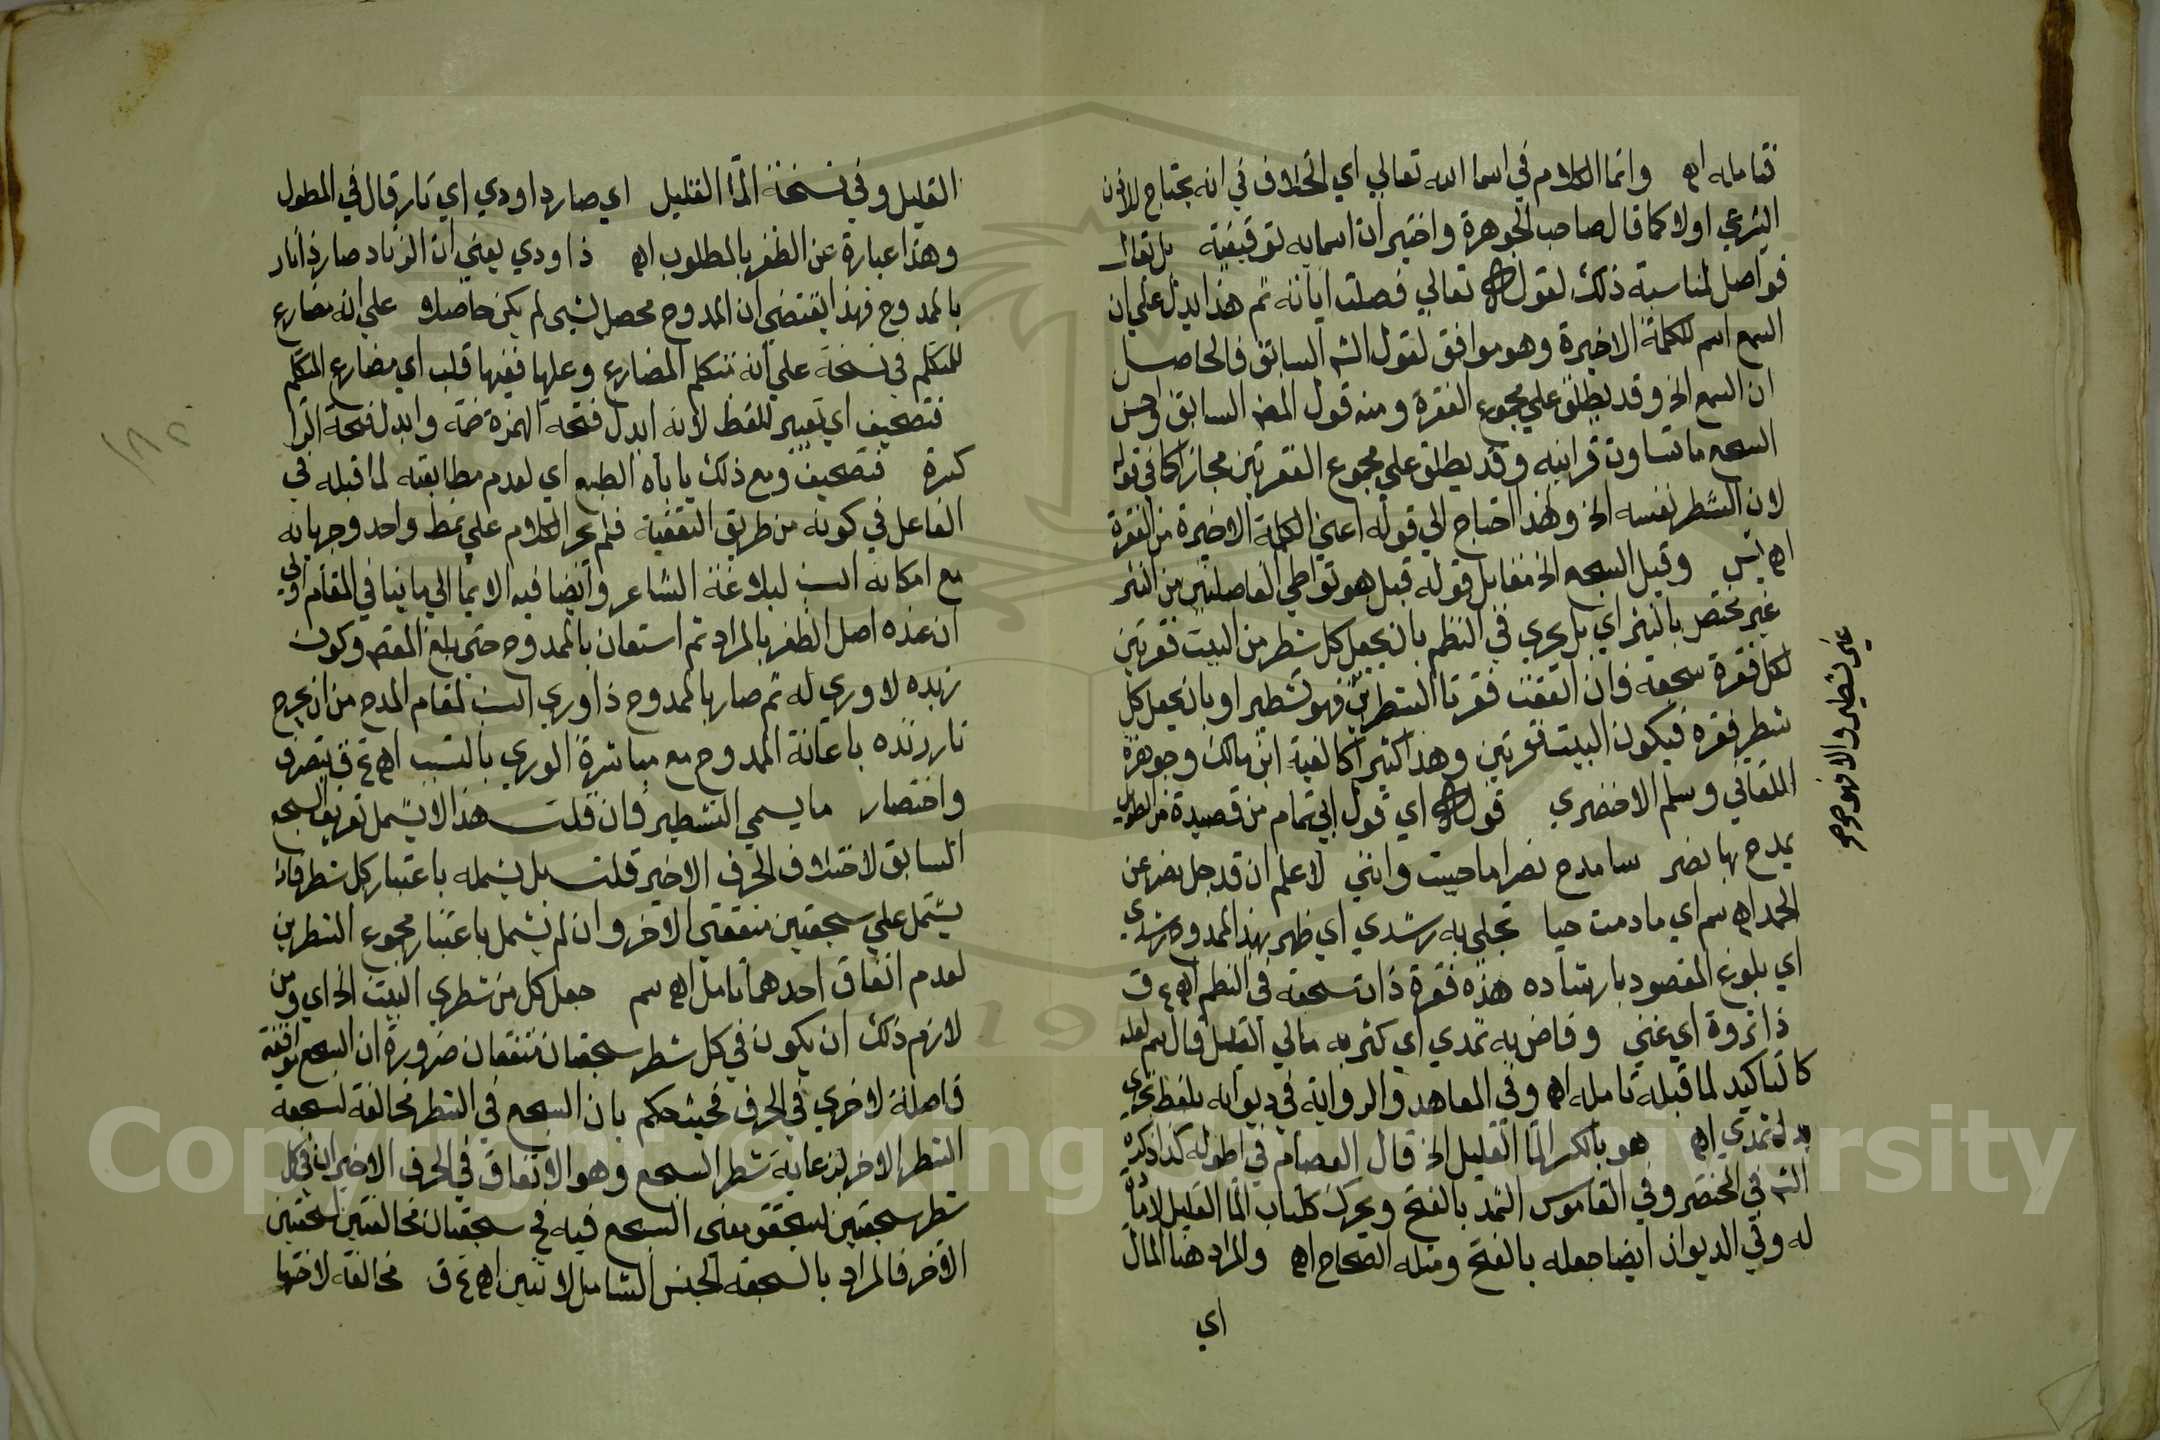 فتامله اه وانما الكلام في اسما الله تعالي اي الخلاف في انه يحتاج للاذن
الشرعي اولا كما قال صاحب الجوهرة واختير ان اسمايه توقيفية بل يقال
فواصل لمناسبة ذلك لقوله تعالي فصلت اياته ثم هذا يدل علي ان
السجع اسم للكلمة الاخيرة وهو موافق لقول الشه السابق فالحاصل
ان السجع الخ وقد يطلق علي مجموع الفقرة ومنه قول المصه السابق واحسن
السجع ما تساوت قراينه وقد يطلق علي مجموع الفقرتين مجازا كما في قوله
لان الشطر نفسه الخ ولهذا احتاج الي قوله اعني الكلمة الاخيرة من الفقرة
اه يس وقيل السجع الخ مقابل قوله قيل هو تواطي الفاصلتين من النثر
غير مختص بالنثر اي بل يجري في النظم بان يجعل كل شطر من البيت فقرتين
لكل فقرة سجعة فان اتفقت فقرتا الشطرين فهو تشطير او بان يجعل كل
غير تشطير والا فهو
شطر فقرة فيكون البيت فقرتين وهذا كثير كالفية ابن مالك وجوهرة
اللقاني وسلم الاخضري قوله اي قول ابي تمام من قصيدة من الطويل
يمدح بها نصر سامدح نصرا ما حييت وانني لاعلم ان قد جل نصر عن
الحمد اه سم اي ما دمت حيا تجلي به رشدي اي ظهر بهذا الممدوح رشدي
اي بلوغ المقصود بارشاده هذه فقرة ذات سجعة في النظم اه ع ق
ذا ثروة اي غني وفاض به ثمدي اي كثر به مالي القليل قال سم لعله
كالتاكيد لما قبله تامله اه وفي المعاهد والرواية في ديوانه بلفظ بحري
بدل ثمدي اه هو بالكسر الما القليل الخ قال العصام في اطوله كذا ذكره
الشه في المختصر وفي القاموس الثمد بالفتح ويحرك ككتاب الما القليل لا مادة
له وفي الديوان ايضا جعله بالفتح ومثله الصحاح اه والمراد هنا المال
اي
القليل وفي نسخة الما القليل اي صار ذا وري اي نار قال في المطول
وهذا عبارة عن الظفر بالمطلوب اه ذا وري يعني ان الزناد صار ذا نار
بالممدوح فهذا يقتضي ان الممدوح محصل لشيي لم يكن حاصلا علي انه مضارع
للمتكلم في نسخة علي انه متكلم المضارع وعليها ففيها قلب اي مضارع المتكلم
فتصحيف اي تغيير للفظ لانه ابدل فتحة الهمزة ضمة وابدل فتحة الرا
كسرة فتصحيف ومع ذلك ياباه الطبع اي لعدم مطابقته لما قبله في
الفاعل في كونه من طريق التقفية فلم يجر الكلام علي نمط واحد وجريانه
مع امكانه انسب لبلاغة الشاعر وايضا فيه الايما الي ما ينافي المقام وهي
ان عنده اصل الظفر بالمراد ثم استعان بالممدوح حتي بلغ المقصد وكون
زنده لا وري له ثم صار بالممدوح ذا وري انسب لمقام المدح من ان يخرج
نار زنده باعانة الممدوح مع مباشرة الوري بالتسبب اه ع ق بتصرف
واختصار ما يسمي التشطير فان قلت هذا لا يشمل تعريف السجع
السابق لاختلاف الحرف الاخير قلت بل يشمله باعتبار كل شطر فانه
يشتمل علي سجعتين متفقتي الاخر وان لم يشمل باعتبار مجموع الشطرين
لعدم اتفاق احدهما تامل اه سم جعل كل من شطري البيت الخ اي ومن
لازم ذلك ان يكون في كل شطر سجعتان متفقتان ضرورة ان السجع موافقة
فاصلة لاخري في الحرف فحيث حكم بان السجع في الشطر مخالفة لسجعة
الشطر الاخر لزم رعاية شطر السجع وهو الاتفاق في الحرف الاخير ان في كل
شطر سجعتين ليتحقق معني السجع فيه فح سجعتان مخالفتين لسجعتين
الاخر فالمراد بالسجعة الجنس الشامل لاثنين اه ع ق مخالفة لاختها